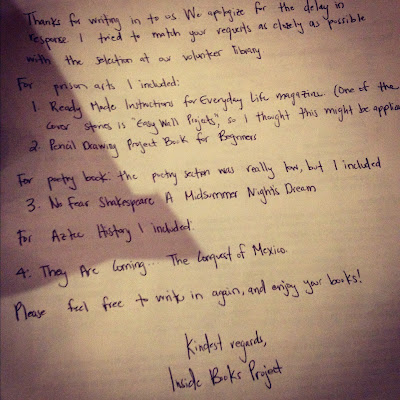 Thanks for writing in to us We apologize for the delay in
response I tried to match your requests as closely as possible
with the selection at our volunteer library
For prison arts I included:
1 Ready Made Instructions for Everyday Life magazine. (One of the
cover stories is "Easy Wall Projects", so I thought this might be
2. Pencil Drawing Project Book for Beginners
For poetry book: the poetry section was really low, but I included
3. No Fear Shakespeare A Midsummer Night's Dream
For Aztec History I included:
4. They Are Coming... The Conquest of Mexico.
Please feel free to write in again, and enjoy your books!
Kindest regards,
Inside Books Project